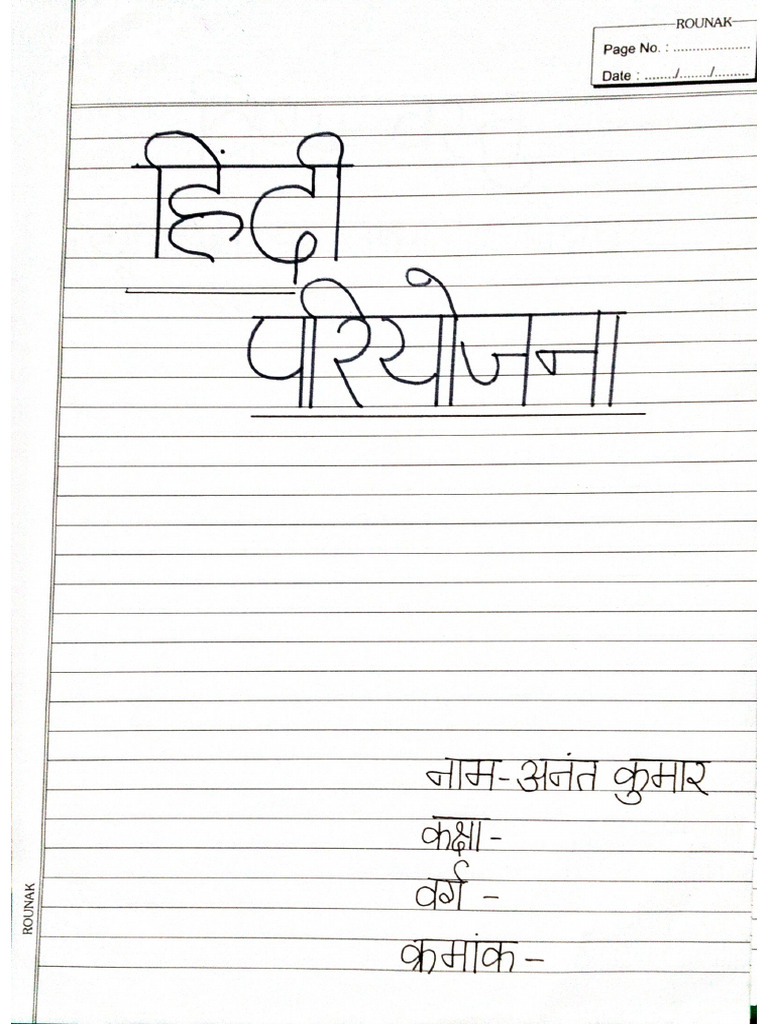 ROUNAK
Page No. : ....................
Date : ......../......../.........
हिंदी
परियोजना
नाम - अनंत कुमार
कक्षा -
वर्ग -
क्रमांक -
ROUNAK